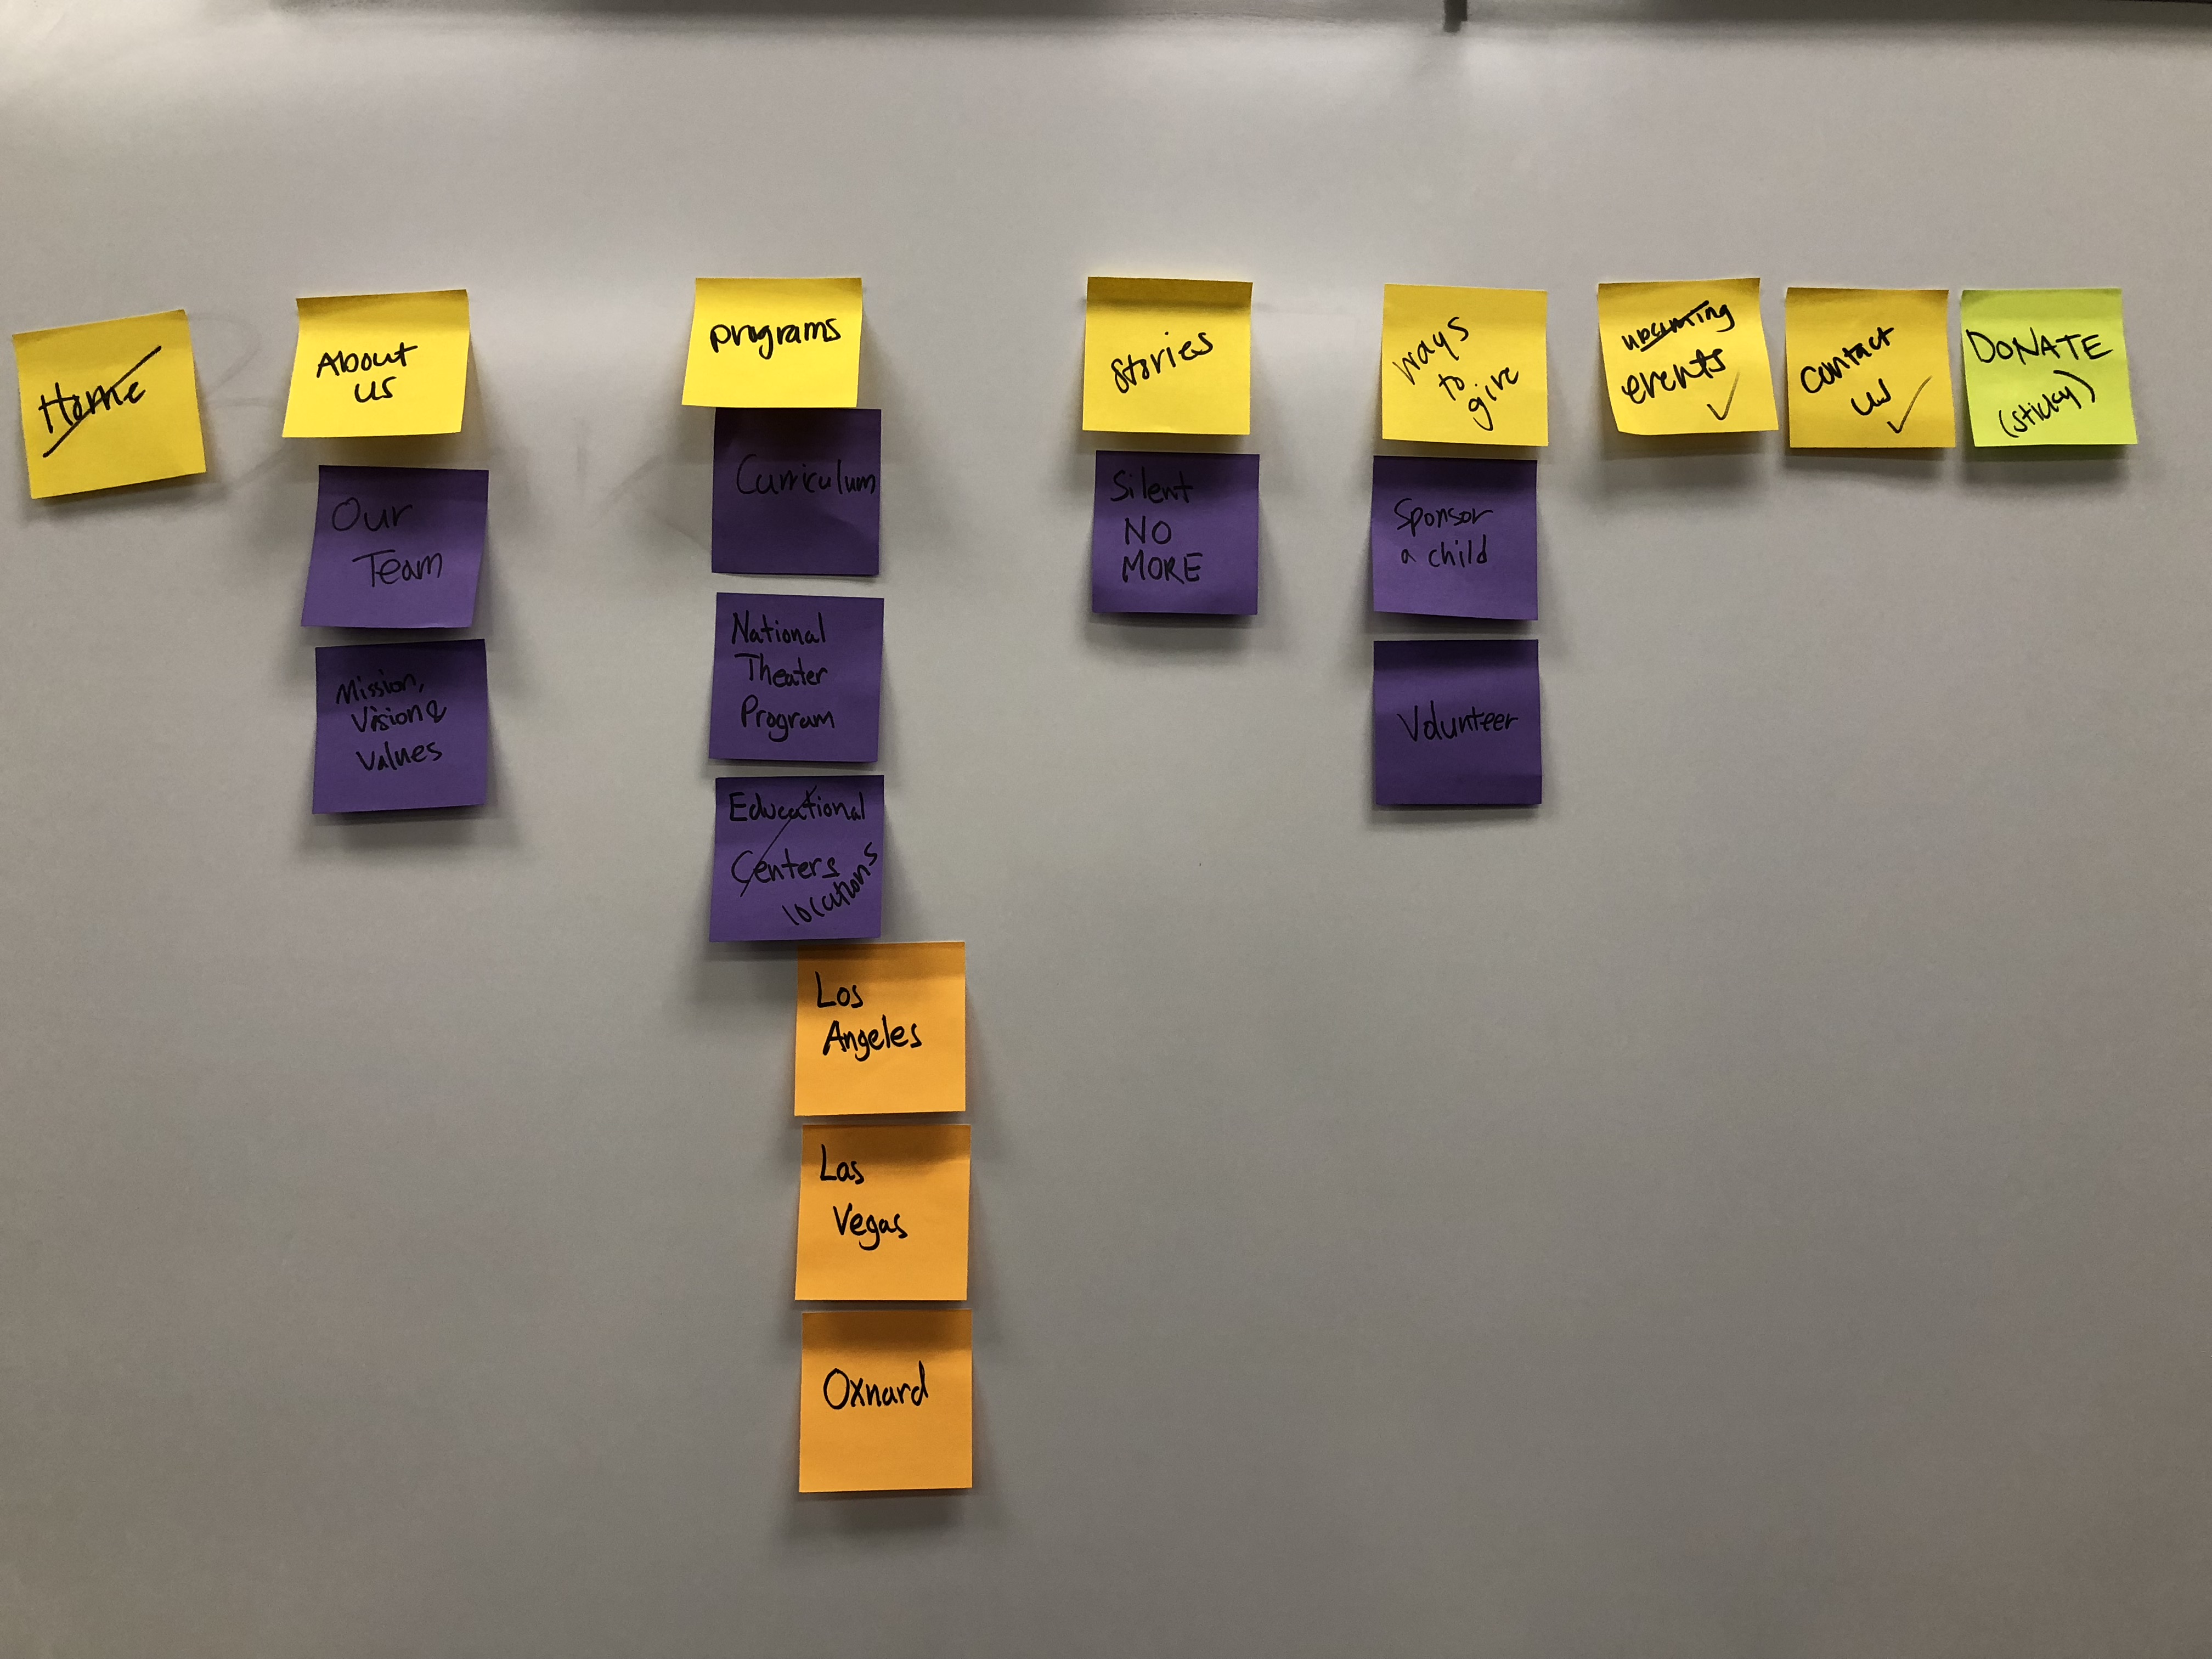 Home
About
us
Our
Team
Mission,
Vision &
Values
programs
Curriculum
National
Theater
Program
Educational
Centers
locations
Los
Angeles
Las
Vegas
Oxnard
Stories
Silent
NO
MORE
ways
to
give
Sponsor
a child
Volunteer
upcoming
events
contact
us
DONATE
(sticky)